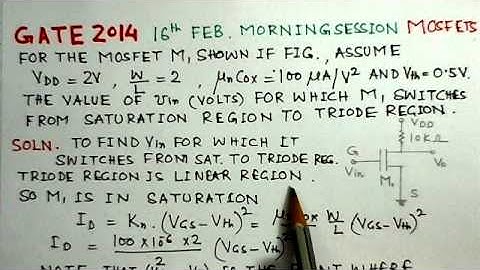 GATE 2014 16th FEB. MORNING SESSION MOSFETS
FOR THE MOSFET M, SHOWN IF FIG., ASSUME
VDD = 2V, W/L = 2, μnCox = 100 μA/V² AND Vth = 0.5V.
THE VALUE OF Vin (VOLTS) FOR WHICH M, SWITCHES
FROM SATURATION REGION TO TRIODE REGION.
SOLN. TO FIND Vin FOR WHICH IT
SWITCHES FROM SAT. TO TRIODE REG.
TRIODE REGION IS LINEAR REGION.
SO M, IS IN SATURATION
ID = Kn. (VGS - Vth)² = W/L (VGS - Vth)²
ID = 100 × 10⁻⁶ × 2 / 2 (VGS - Vth)²
NOTE THAT IS THE POINT WHERE
VDD
10KΩ
G
Vin
M,
Vo
S